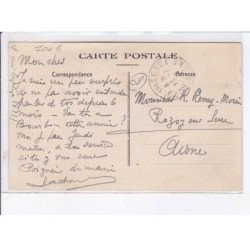 1006
CARTE POSTALE
Correspondance
Adresse
Mon cher
Je suis un peu surpris
de ne pas avoir entendu
parler de toi depuis 6
mois - Vas tu a
Bourbon cette année?
Moi j'y pars Jeudi
matin, a ton service
si tu y vas seul
Poignée de main
Monsieur R. Remy
Rozoy sur Serre
Aisne